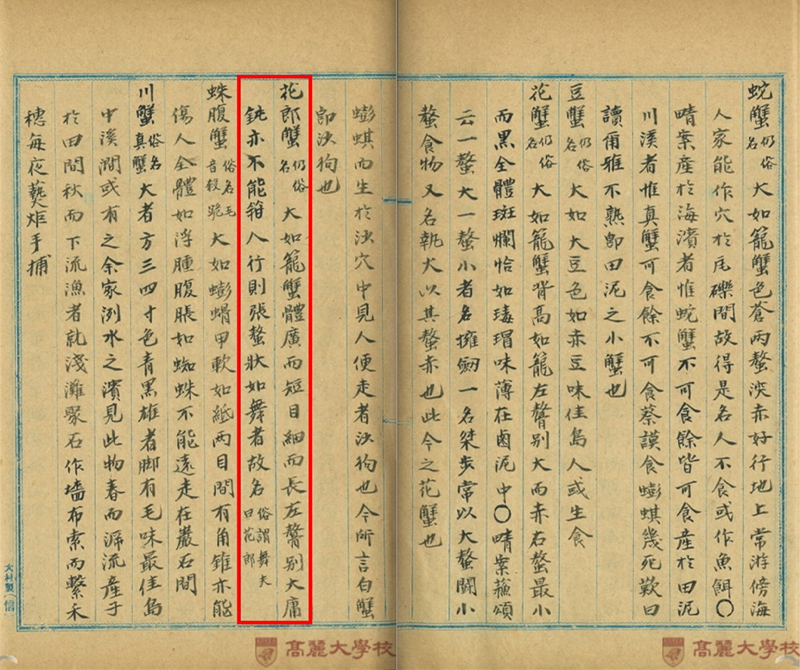 蛇蟹仍俗名大如籠蟹色蒼两螯淡赤好行地上常游傍海
人家能作穴於瓦礫間故得是名人不食或作魚餌○
晴案產於海濱者惟蛇蟹不可食餘皆可食產於田泥
川溪者惟真蟹可食餘不可食蔡謨食蟛蜞幾死歎曰
讀爾雅不熟即田泥之小蟹也
豆蟹仍俗名大如大豆色如赤豆味佳島人或生食
花蟹仍俗名大如籠蟹背高如籠左螯別大而赤右螯最小
而黑全體斑爛恰如瑇瑁味薄在鹵泥中○晴案蘇頌
云一螯大一螯小者名擁劒一名桀步常以大螯鬪小
螯食物又名執火以其螯赤也此今之花蟹也
蟛蜞而生於沙穴中見人便走者沙狗也今所言白蟹
即沙狗也
花郎蟹仍俗名大如籠蟹體廣而短目細而長左螯別大庸
鈍亦不能箝人行則張螯狀如舞者故名俗謂舞夫曰花郎
蛛腹蟹俗名毛音殺跪大如蟛蜎甲軟如紙两目間有角錐亦能
傷人全體如浮腫腹脹如蜘蛛不能遠走在巖石間
川蟹俗名真蟹大者方三四寸色青黑雄者脚有毛味最佳島
中溪澗或有之余家洌水之濱見此物春而泝流產子
於田間秋而下流漁者就淺灘聚石作墻布索而繫禾
穗每夜爇炬手捕
大村製(信)
高麗大學校
高麗大學校